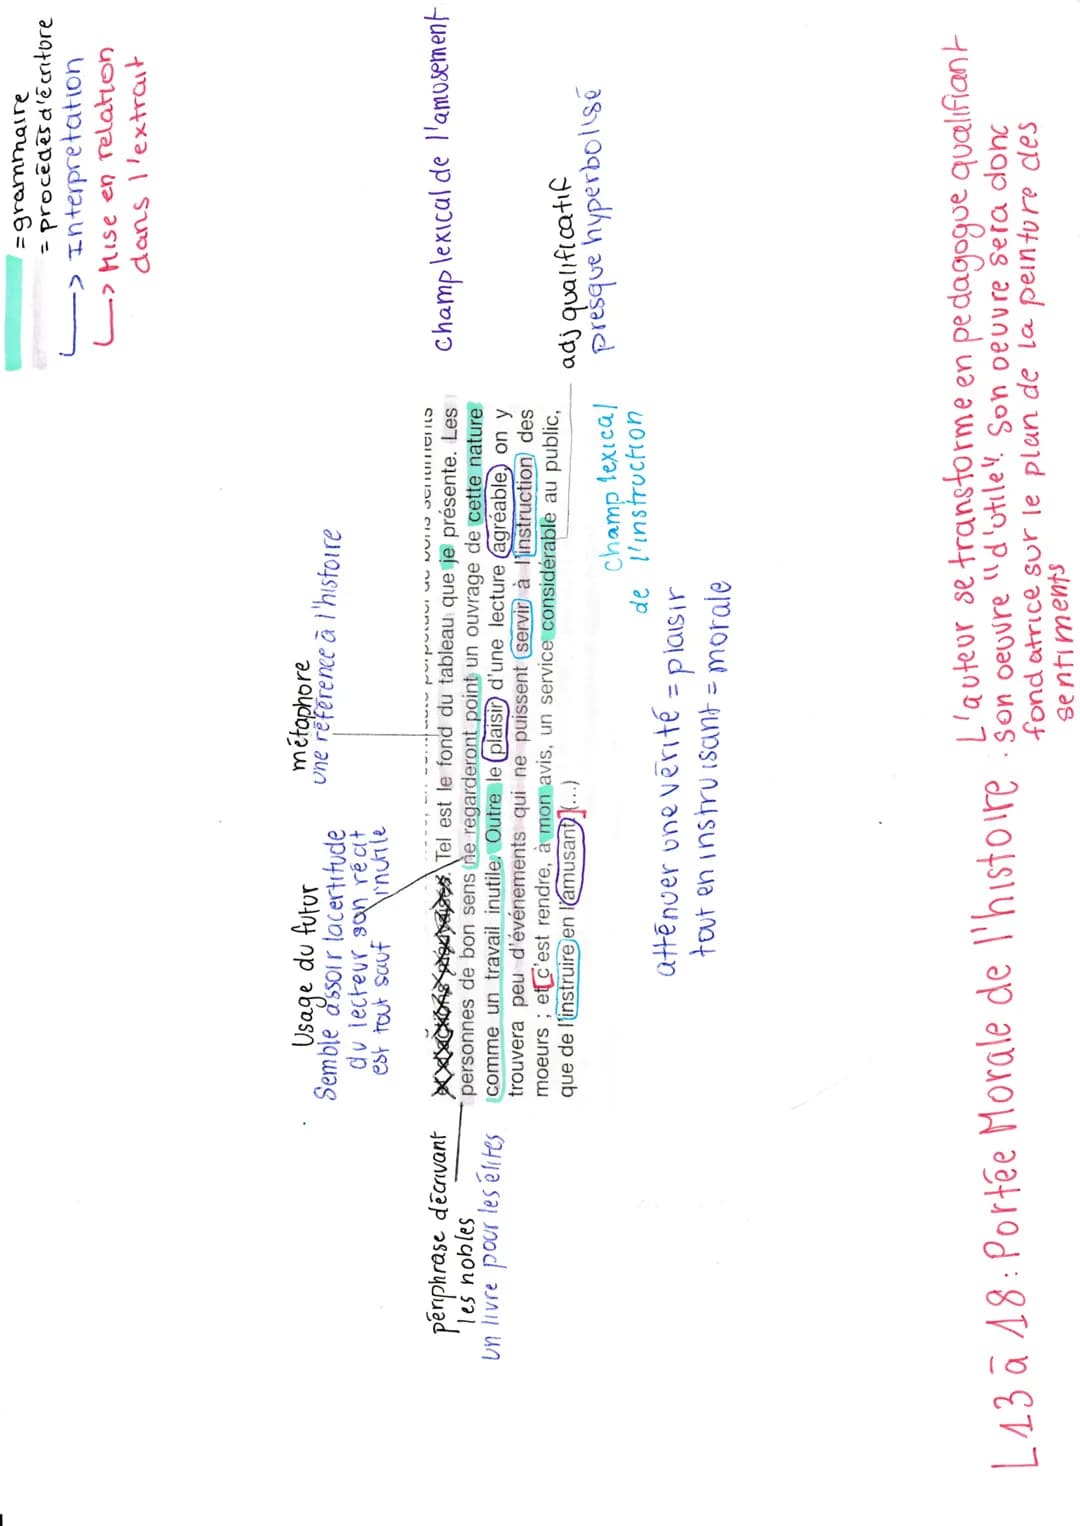 = grammaire
= procédés d'écriture
↳ Interprétation
↳ Mise en relation
dans l'extrait
métaphore
une référence à l'histoire
Usage du futur
Semble assoir la certitude
du lecteur son récit
est tout sauf inutile
champ lexical de l'amusement
périphrase décrivant
les nobles
un livre pour les élites
de bons sentiments
et d'actions mauvaises. Tel est le fond du tableau que je présente. Les
personnes de bon sens ne regarderont point un ouvrage de cette nature
comme un travail inutile. Outre le plaisir d'une lecture agréable, on y
trouvera peu d'événements qui ne puissent servir à l'instruction des
moeurs ; et c'est rendre, à mon avis, un service considérable au public,
que de l'instruire en l'amusant. (...)
adj qualificatif
presque hyperbolisé
champ lexical
de l'instruction
atténuer une vérité = plaisir
tout en instruisant = morale
L 13 à 18 : Portée Morale de l'histoire : L'auteur se transforme en pedagogue qualifiant
son oeuvre "d'utile". Son oeuvre sera donc
fondatrice sur le plan de la peinture des
sentiments